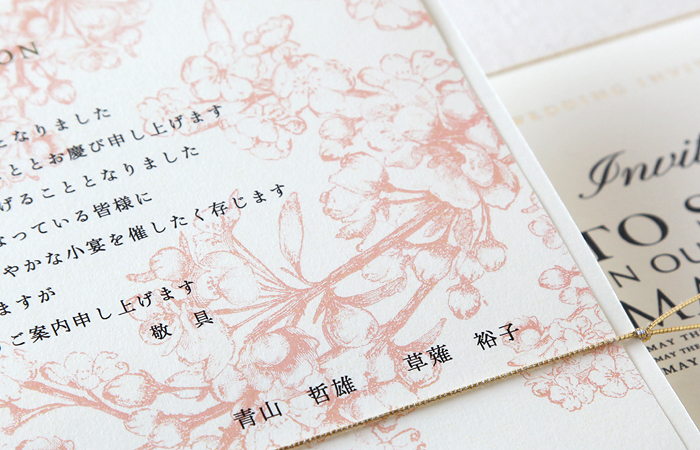 ON
となりました
こととお慶び申し上げます
げることとなりました
なっている皆様に
やかな小宴を催したく存じます
ますが
ご案内申し上げます
敬 具
青山 哲雄 草薙 裕子
WEDDING INVI
Invit
TO S
N OU
MA
MAY TH
MAY THE
MAY